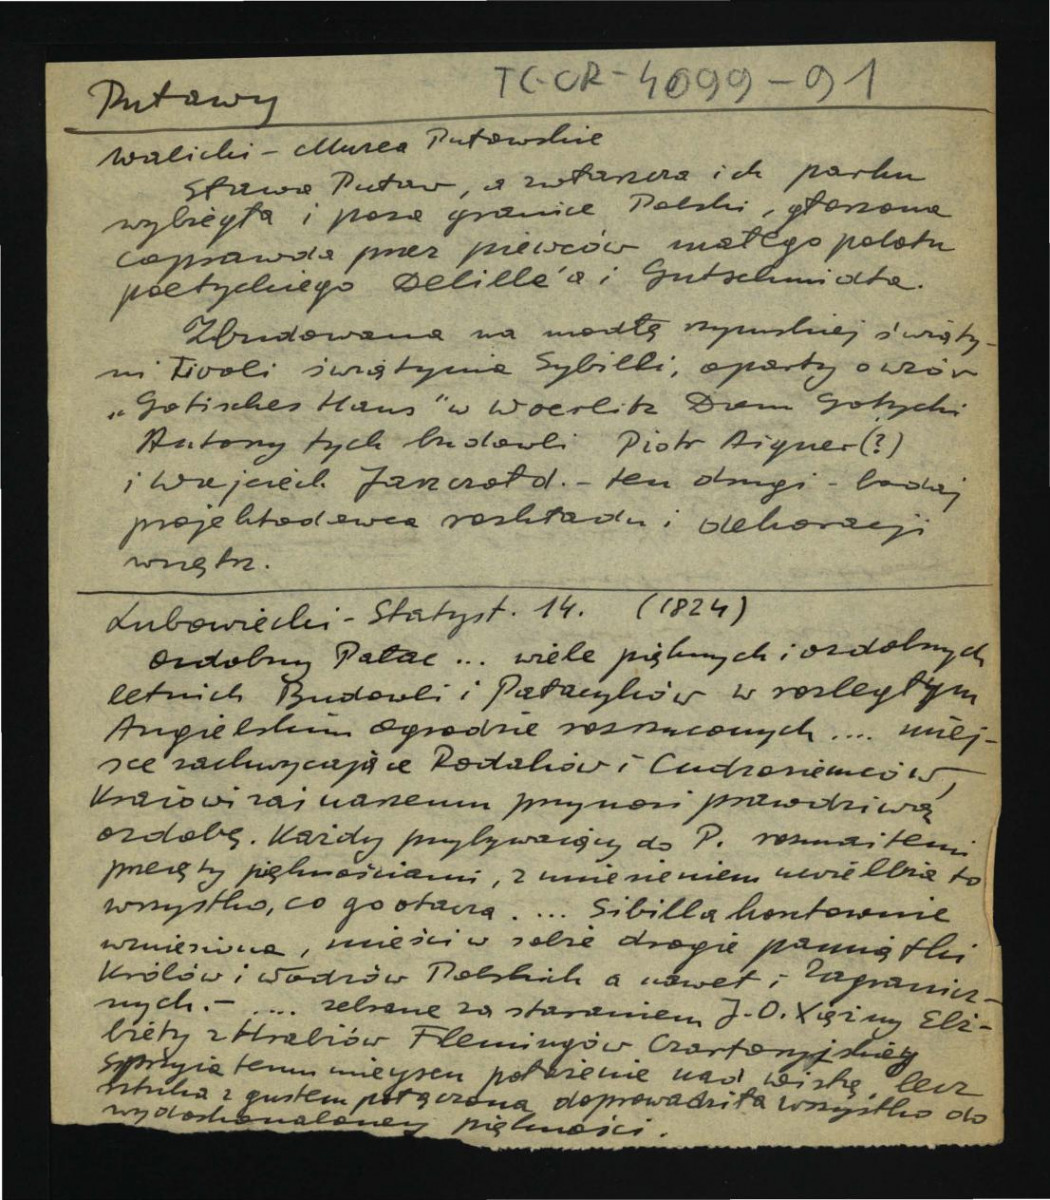 Puławy
TC-OR-4099-91
Walicki - Muzea Puławskie
Sława Puław, a zwłaszcza ich parku
wybiegła i poza granice Polski, głoszona
coprawda przez piewców małego polotu
poetyckiego Delille'a i Gutschmidta.
Zbudowana na modłę rzymskiej świąty-
ni Tivoli świątynia Sybilli, oparty o wzór
"Gotisches Haus" w Woerlitz Dom Gotycki
Autorzy tych budowli Piotr Aigner(?)
i Wojciech Jaszczołd. - ten drugi - bodaj
projektodawca rozkładu i dekoracji
wnętrz.
Łubowiecki - Statyst. 14. (1824)
Ozdobny Pałac ... wiele pięknych i ozdobnych
letnich Budowli i Pałacyków w rozległym
Angielskim ogrodzie rozrzuconych .... miej-
sce zachwycające Rodaków i Cudzoziemców,
Kraiowi zaś naszemu przynosi prawdziwą
ozdobę. Każdy przybywaiący do P. rozmaitemi
przeięty pięknościami, z uniesieniem uwielbia to
wszystko, co go otacza. ... Sibilla kosztownie
wzniesiona, mieści w sobie drogie pamiątki
Królów i Wodzów Polskich a nawet i Zagranicz-
nych. - .... zebrane za staraniem J.O. Xiężny Elż-
biety z Hrabiów Flemingów Czartoryjskiéy
Sprzyia temu mieyscu położenie nad Wisłą, lecz
sztuka z gustem połączona doprowadziła wszystko do
wydoskonaloney piękności.